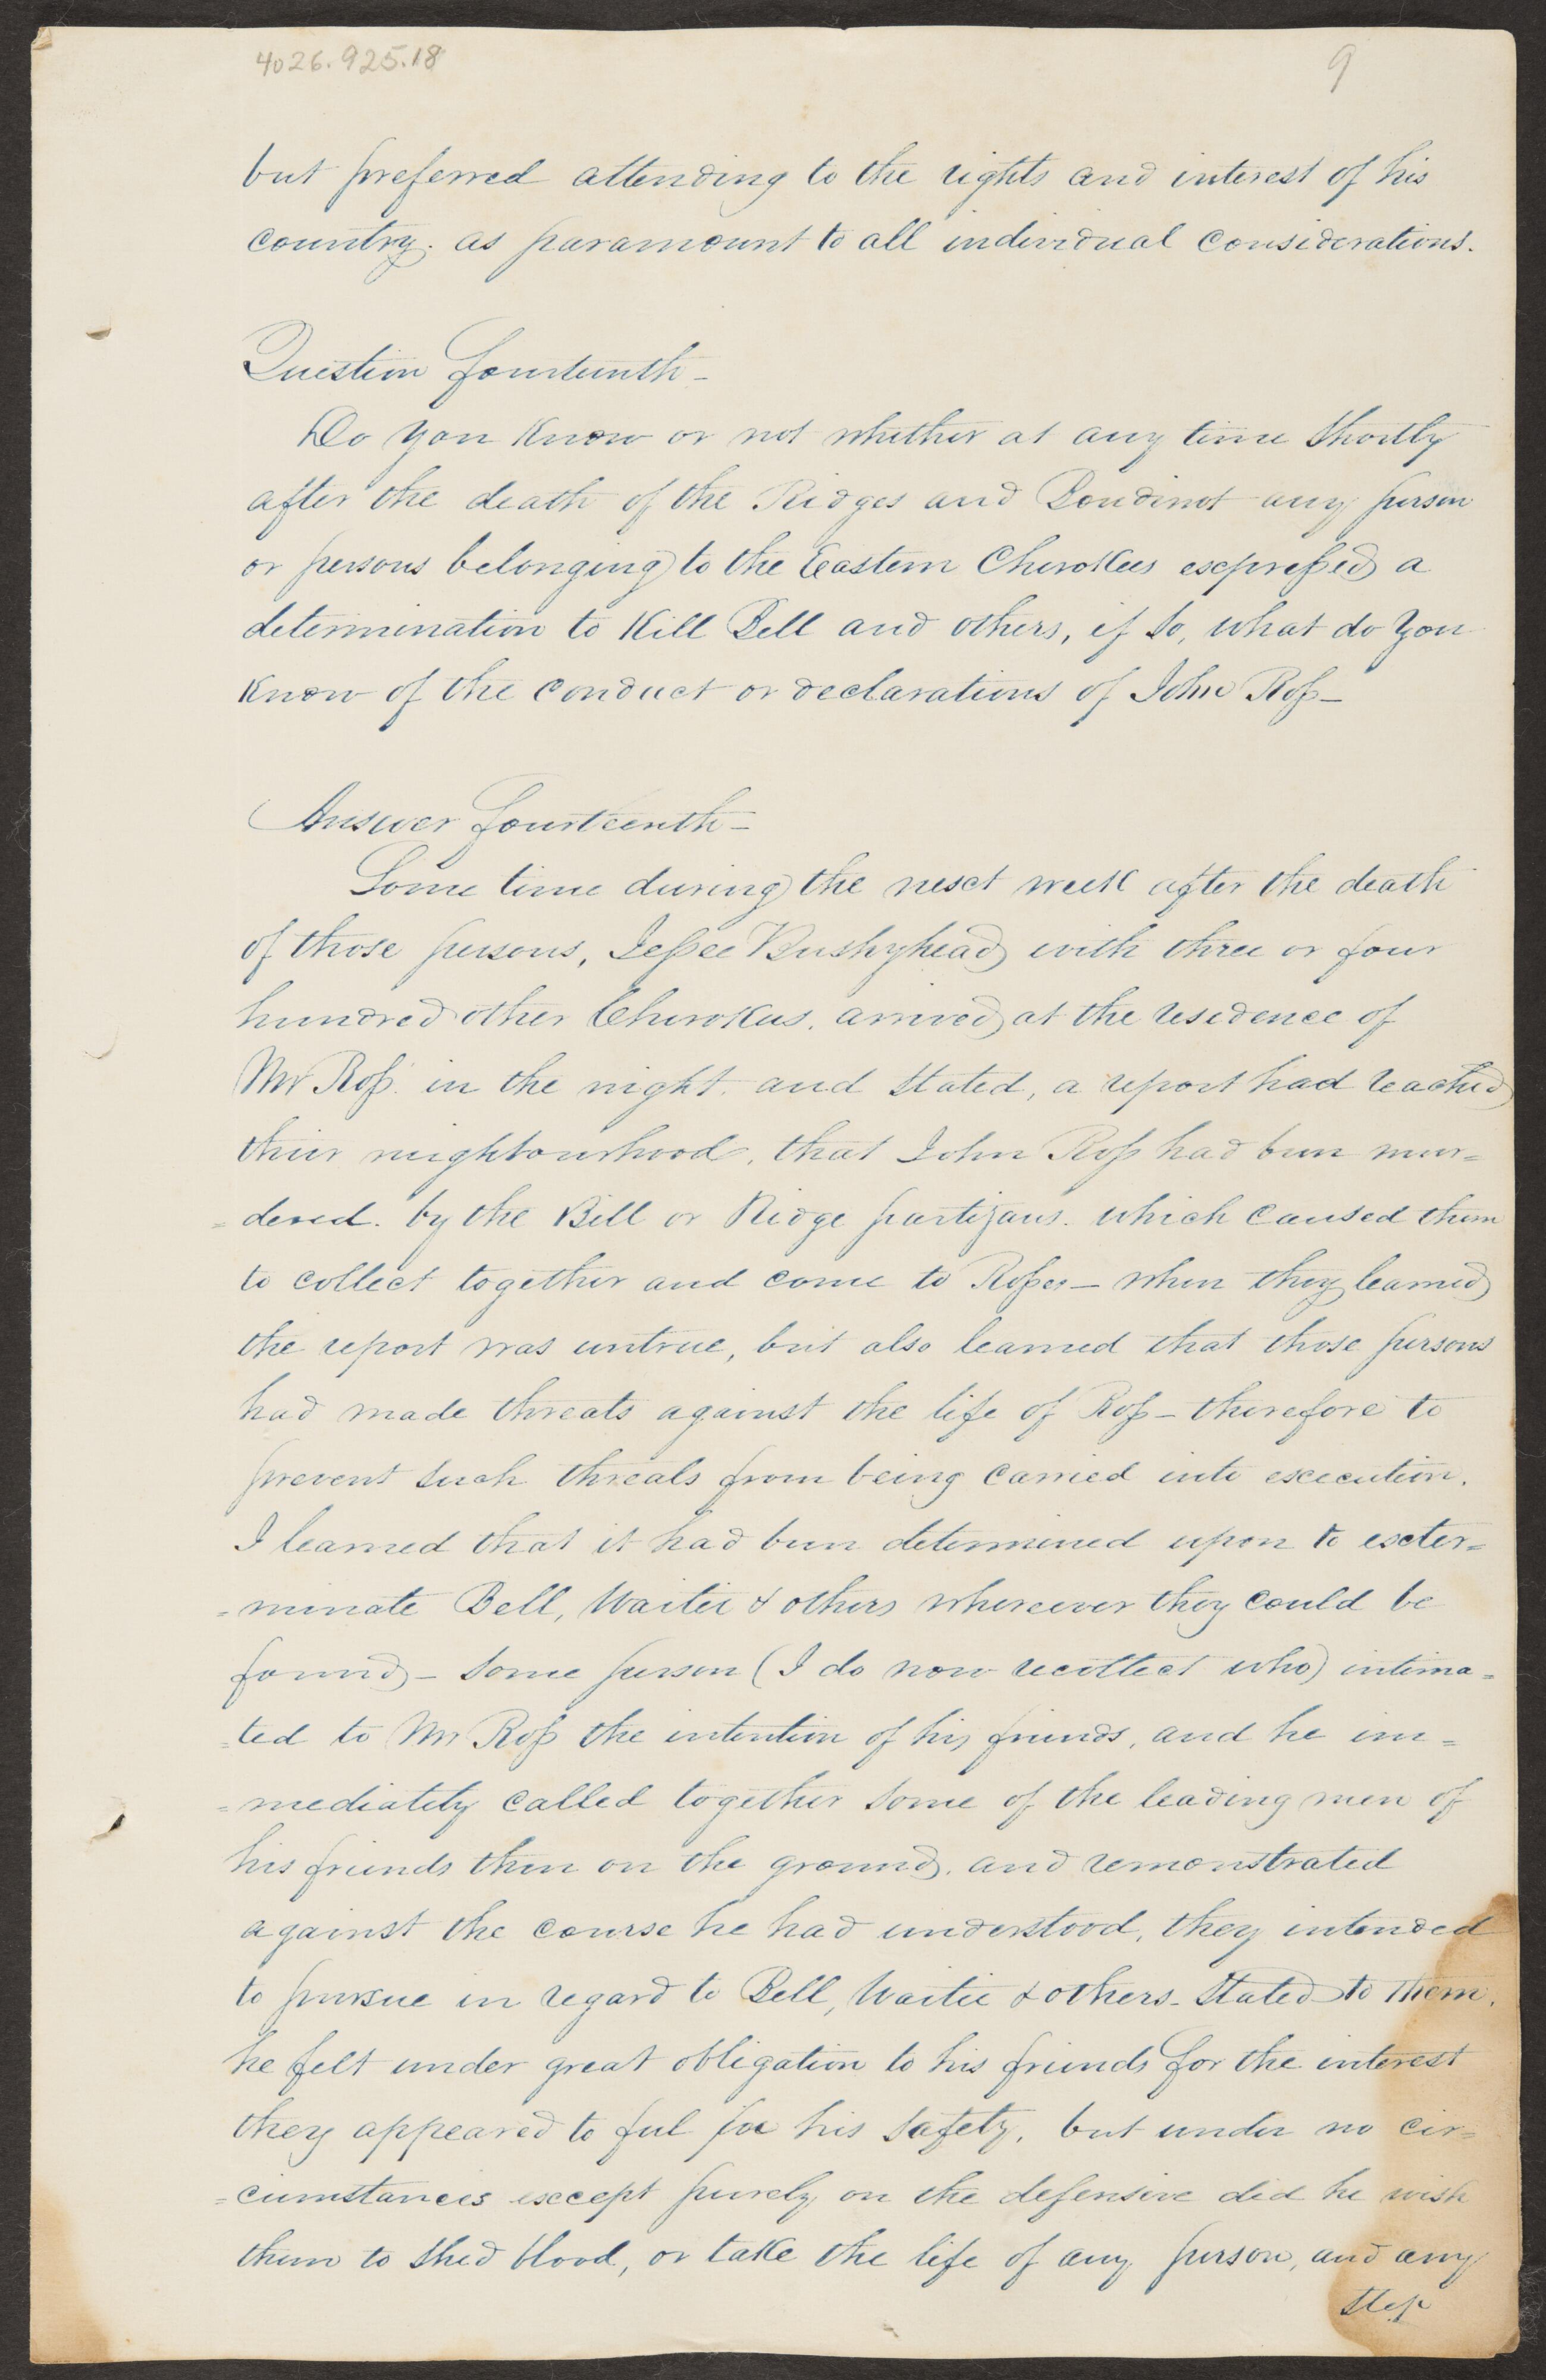 4026.925.18
9
but preferred attending to the rights and interest of his
country. as paramount to all individual considerations.
Question fourteenth-
Do you Know or not whether at any time shortly
after the death of the Ridges and Boudinot any person
or persons belonging to the Eastern Cherokees expressed a
determination to Kill Bell and others, if so, what do you
Know of the conduct or declarations of John Ross-
Answer fourteenth-
Some time during the next week after the death
of those persons, Jessee Bushyhead with three or four
hundred other Cherokees. arrived at the residence of
Mr Ross. in the night. and stated, a report had reached
their neighbourhood, that John Ross had been mur=
=dered. by the Bell or Ridge partizans. which caused them
to collect together and come to Rosses- when they learned
the report was untrue, but also learned that those persons
had made threats against the life of Ross- therefore to
prevent such threats from being carried into execution.
I learned that it had been determined upon to exter=
=minate Bell, Waitie & others whereever they could be
found- some person (I do now recollect who) intima=
=ted to Mr Ross the intention of his friends, and he im=
=mediately called together some of the leading men of
his friends then on the ground. and remonstrated
against the course he had understood, they intended
to pursue in regard to Bell, Waitie & others- stated to them,
he felt under great obligation to his friends for the interest
they appeared to feel for his safety, but under no cir=
=cumstances except purely on the defensive did he wish
them to shed blood, or take the life of any person, and any
step